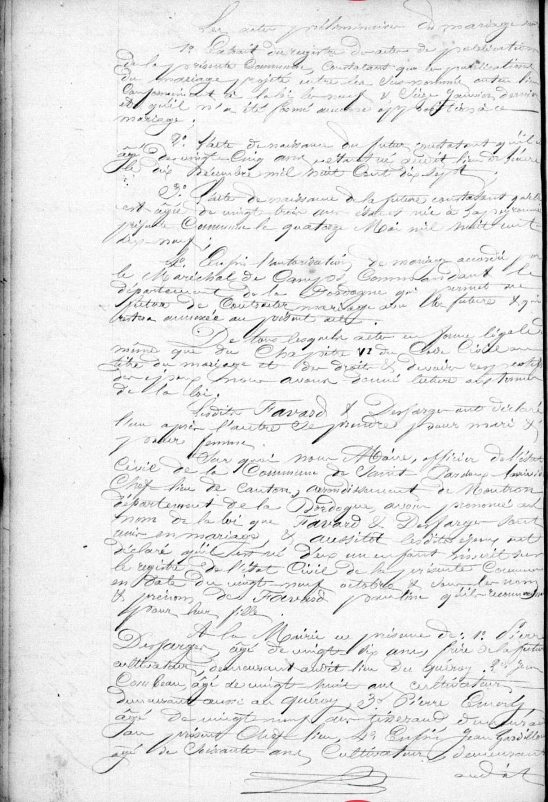 Les actes préliminaires du mariage sont
1o Extrait du registre des actes de publications
de la présente Commune, Constatant que les publications
du mariage projeté entre les
Comparaissant le neuf & Seize Janvier dernier
et qu'il n'a été formé aucune opposition à ce
mariage;
2o l'acte de naissance du futur constatant qu'il est
âgé de vingt Cinq ans, et est né audit lieu de
le dix Décembre mil huit Cent dix sept.
3o l'acte de naissance de la future constatant qu'elle
est âgée de vingt trois ans et née à
présente Commune le quatorze Mai mil huit cent
dix neuf;
4o Enfin l'autorisation de mariage accordée par
le Maréchal de Camp, Commandant le
département de la Dordogne qui permet au
futur de Contracter mariage avec la future & qui
restera annexée au présent acte.
De tous lesquels actes en forme légale
même que du Chapitre VI du Code Civil au
titre du mariage et des droits & devoirs respectifs
des époux, nous avons donné lecture aux termes
de la loi.
Lesdits Favard & Desfarges ont déclaré
l'un après l'autre se prendre pour mari &
pour femme.
Sur quoi nous Maire, officier de l'état
Civil de la Commune de Saint Pardoux
Chef lieu de Canton, arrondissement de Nontron
département de la Dordogne, avons prononcé au
nom de la loi que Favard & Desfarges sont
unis en mariage, & aussitôt lesdits époux ont
déclaré qu'il est né d'eux un enfant inscrit sur
le registre de l'état Civil de la présente Commune
en date du vingt neuf octobre & sous les nom
& prénom de Favard pauline qu'ils reconnaissent
pour leur fille
A la Mairie en présence de: 1o Pierre
Desfarges, âgé de vingt dix ans, frère de la future
cultivateur, demeurant audit lieu du Quéroy 2o Jean
Combeau âgé de vingt huit ans cultivateur,
demeurant aussi au Quéroy, 3o Pierre
âgé de vingt neuf ans tisserand demeurant
au présent Chef lieu, 4o Enfin Jean
âgé de Soixante ans, Cultivateur, demeurant
audit